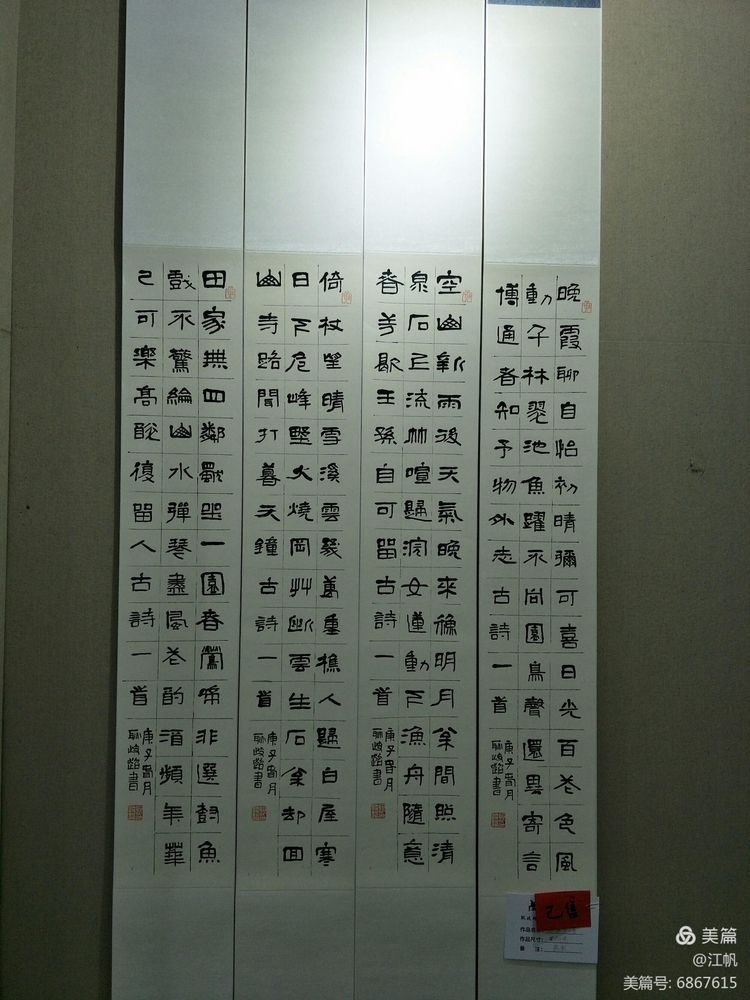 晚霞聊自怡初晴彌可喜日光百花色風
動千林翠池魚躍不同園鳥聲還異寄言
博通者知予物外志古詩一首
庚子春月
書
空山新雨後天氣晚來秋明月松間照清
泉石上流竹喧歸浣女蓮動下漁舟隨意
春芳歇王孫自可留古詩一首
庚子春月
書
倚杖望晴雪溪雲幾萬重樵人歸白屋寒
日下危峰野火燒岡草斷雲生石松却回
山寺路聞打暮天鐘古詩一首
庚子春月
書
田家無四鄰獨坐一園春鶯啼非選樹魚
戲不驚綸山水彈琴盡風花酌酒頻年華
已可樂高興復留人古詩一首
庚子春月
書
已售
作品名
作品尺寸:
备注:
美篇
@江帆
美篇号: 6867615